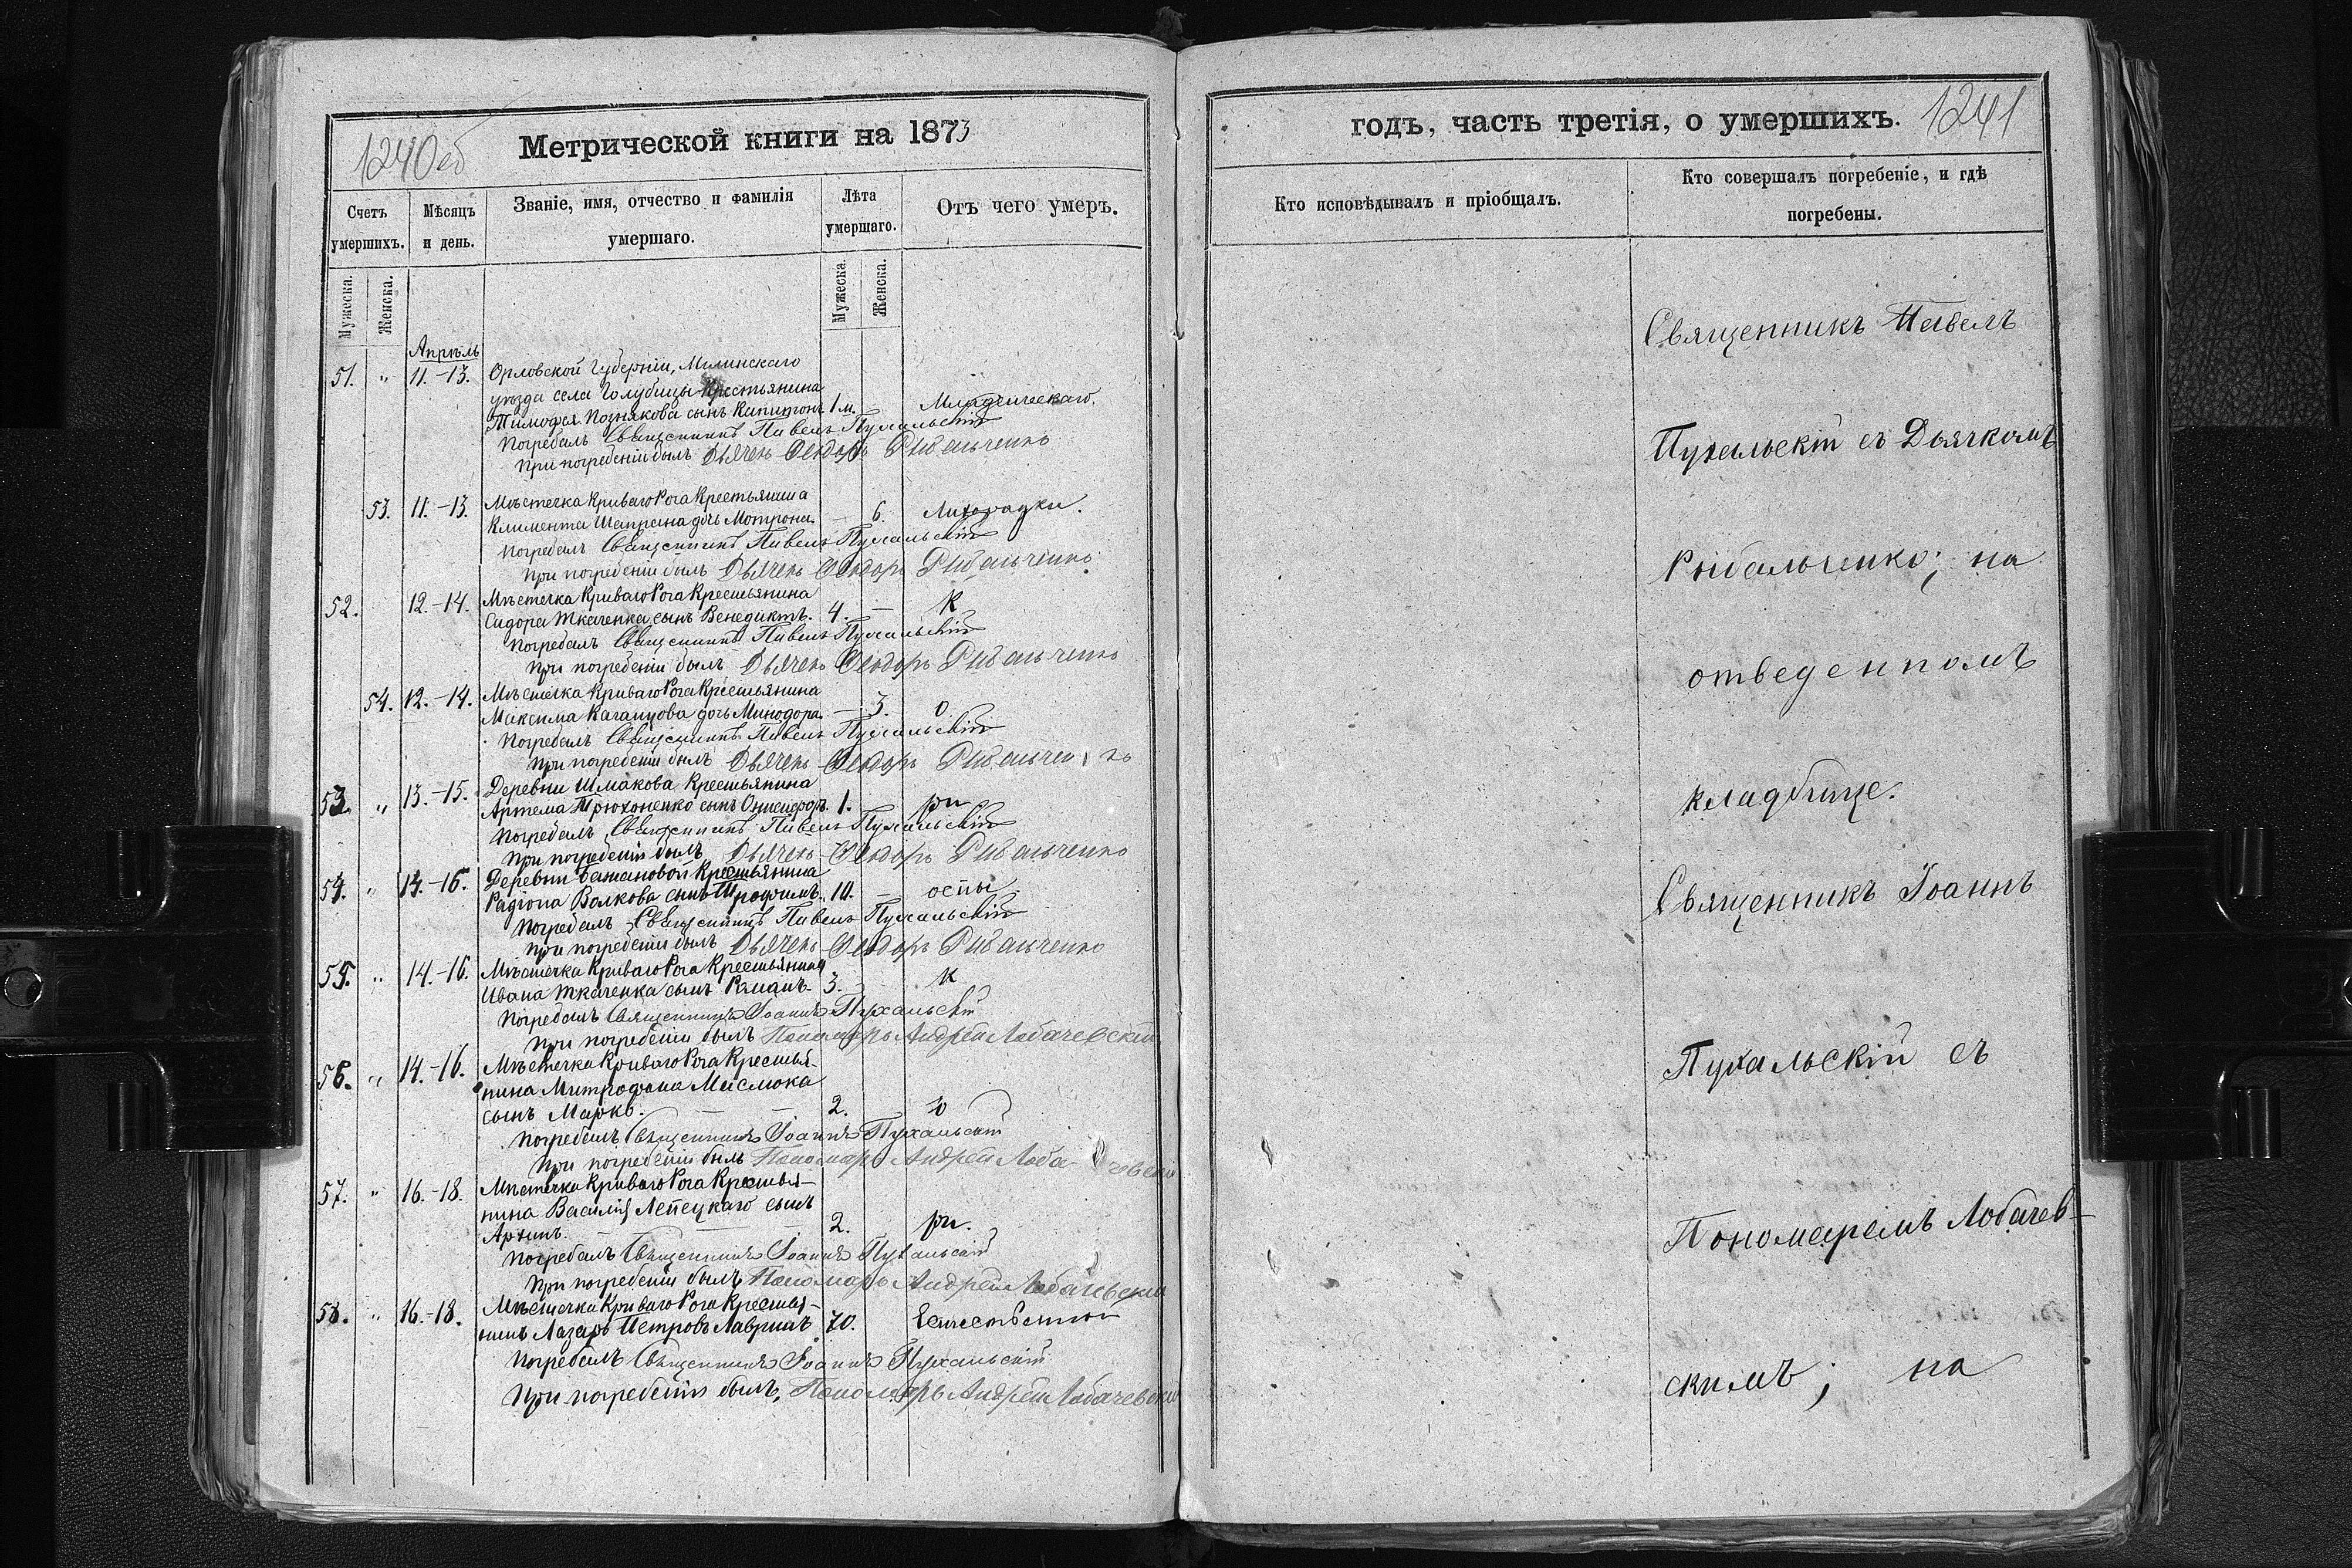 1240об
Метрической книги на 1873
Счетъ умершихъ.
Мѣсяцъ и день.
Званіе, имя, отчество и фамилія умершаго.
Лѣта умершаго.
Отъ чего умеръ.
Мужеска.
Женска.
Мужеска.
Женска.
Апрѣль
51. „ 11.-13. Орловской Губерніи,
уѣзда села Голубицы Крестьянина
Тимофея Познякова сынъ Капитонъ 1 м. Младенческаго.
Погребалъ Священникъ Павелъ Пухальскій
При погребеніи былъ Дьячекъ Феодоръ Рыбальченко
53. 11.-13. Мѣстечка Криваго Рога Крестьянина
Климента дочь Мотрона. — 6. Лихорадки.
Погребалъ Священникъ Павелъ Пухальскій
При погребеніи былъ Дьячекъ Феодоръ Рыбальченко
52. 12.-14. Мѣстечка Криваго Рога Крестьянина
Сидора Ткаченка сынъ Венедиктъ. 4. — К
Погребалъ Священникъ Павелъ Пухальскій
При погребеніи былъ Дьячекъ Феодоръ Рыбальченко
54. 12.-14. Мѣстечка Криваго Рога Крестьянина
Максима дочь Минодора. — 3. о
Погребалъ Священникъ Павелъ Пухальскій
При погребеніи былъ Дьячекъ Феодоръ Рыбальченко
53. „ 13.-15. Деревни Шмакова Крестьянина
Артема Трюхоненко сынъ Онисифоръ. 1. ри
Погребалъ Священникъ Павелъ Пухальскій
При погребеніи былъ Дьячекъ Феодоръ Рыбальченко
54. „ 14.-16. Деревни Бажановой Крестьянина
Радіона Волкова сынъ Трофимъ. 10. — оспы
Погребалъ Священникъ Павелъ Пухальскій
При погребеніи былъ Дьячекъ Феодоръ Рыбальченко
55. „ 14.-16. Мѣстечка Криваго Рога Крестьянина
Ивана Ткаченка сынъ Романъ. 3. К
Погребалъ Священникъ Іоаннъ Пухальскій
При погребеніи былъ Пономарь Андрей Лобачевскій
56. „ 14.-16. Мѣстечка Криваго Рога Крестья-
нина Митрофана Маслюка
сынъ Марко. 2. о
Погребалъ Священникъ Іоаннъ Пухальскій
При погребеніи былъ Пономарь Андрей Лобачевскій
57. „ 16.-18. Мѣстечка Криваго Рога Крестья-
нина Василія Лепецкаго сынъ
Архипъ. 2. ри.
Погребалъ Священникъ Іоаннъ Пухальскій
При погребеніи былъ Пономарь Андрей Лобачевскій
58. „ 16.-18. Мѣстечка Криваго Рога Крестья-
нинъ Лазарь Петровъ 70.
Погребалъ Священникъ Іоаннъ Пухальскій
При погребеніи былъ, Пономарь Андрей Лобачевскій
годъ, часть третія, о умершихъ.
1241
Кто исповѣдывалъ и пріобщалъ.
Кто совершалъ погребеніе, и гдѣ
погребены.
Священникъ Павелъ
Пухальскій съ Дьячкомъ
Рыбальченко; на
отведенномъ
кладбище.
Священникъ Іоаннъ
Пухальскій съ
Пономаремъ Лобачев-
скимъ; на